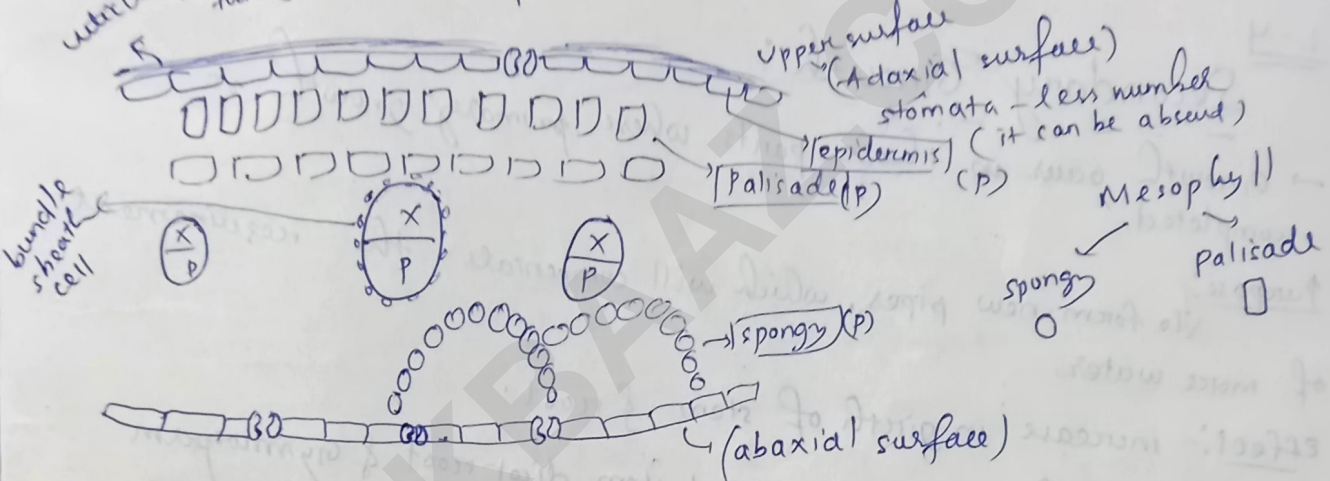 cuticle
Upper surface
(Adaxial surface)
stomata - less number
(it can be absend)
epidermis
(P)
Palisade (P)
Mesophyll
spongy
Palisade
bundle
sheath
cell
X
P
X
P
X
P
spongy (P)
(abaxial surface)
KBAAZ.CO